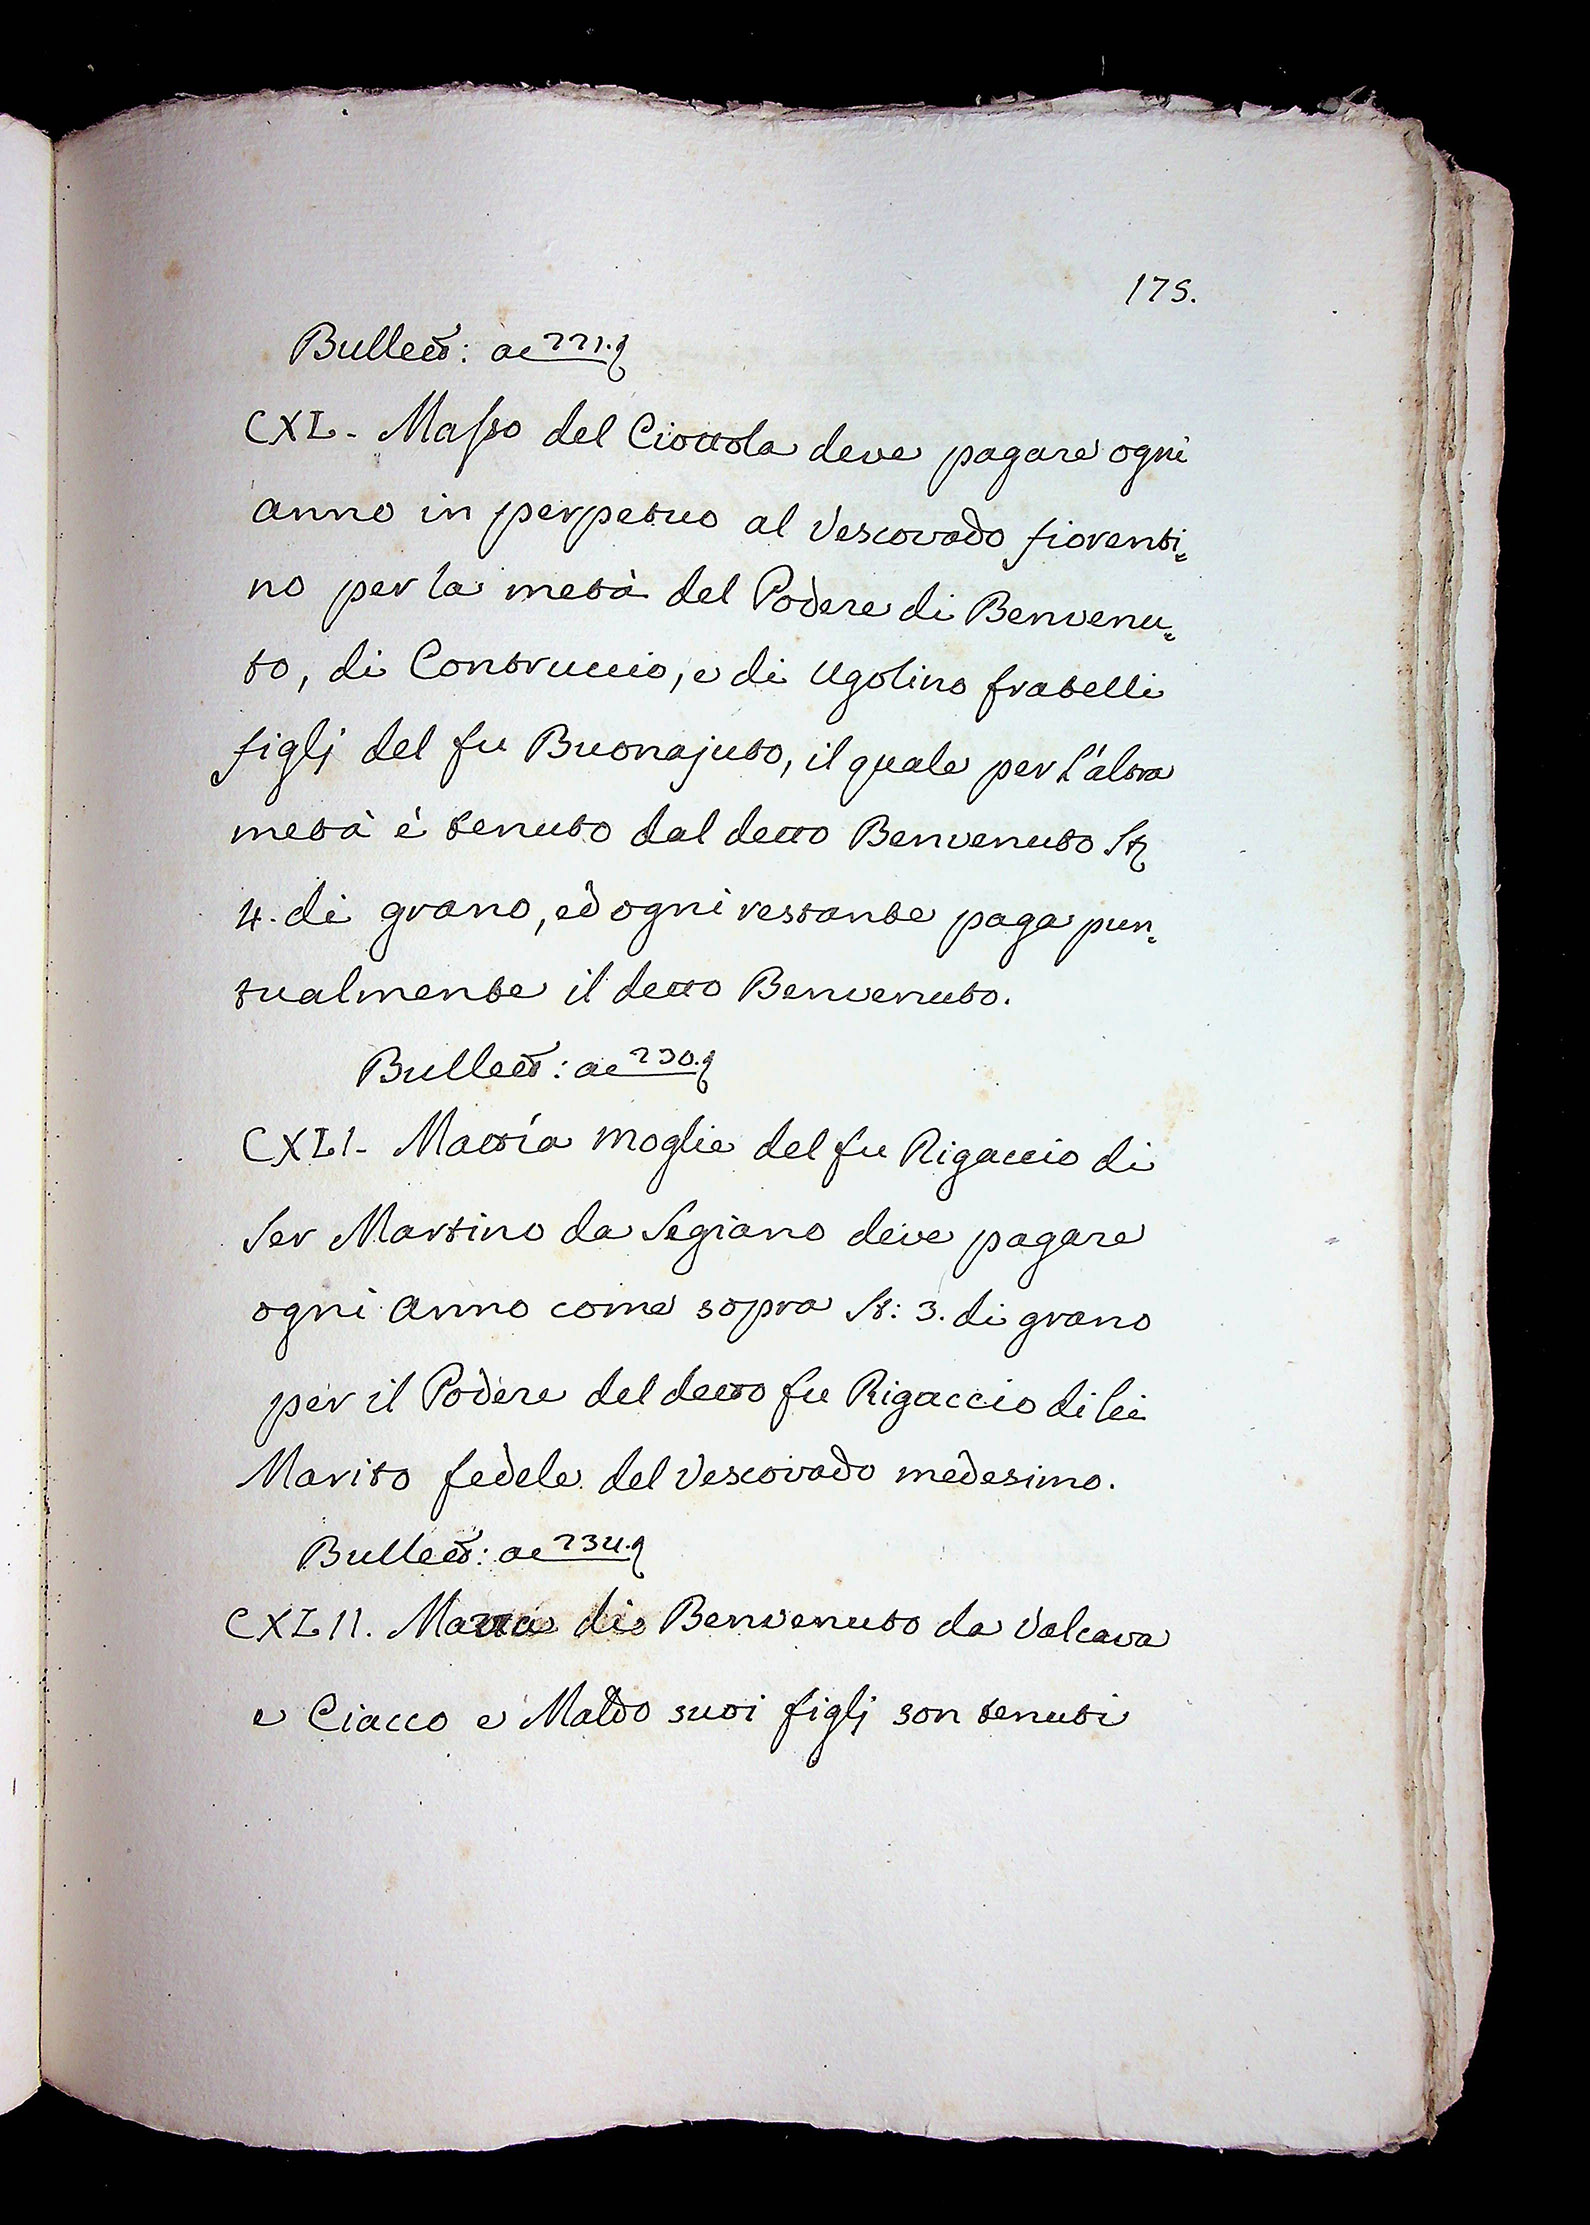 175.
Bullett: ac 221.
CXL. Masso del Ciottola deve pagare ogni
anno in perpetuo al Vescovado fiorenti=
no per la metà del Podere di Benvenu=
to, di Contruccio, e di Ugolino fratelli
figlj del fu Buonajuto, il quale per l'altra
metà è tenuto dal detto Benvenuto St
4. di grano, ed ogni restante paga pun=
tualmente il detto Benvenuto.
Bullett: ac 230.
CXLI. Mattia moglie del fu Rigaccio di
Ser Martino da Segiano deve pagare
ogni anno come sopra St: 3. di grano
per il Podere del detto fu Rigaccio di lei
Marito fedele del Vescovado medesimo.
Bullett: ac 234.
CXLII. di Benvenuto da Valcava
e Ciacco e Maldo suoi figlj son tenuti